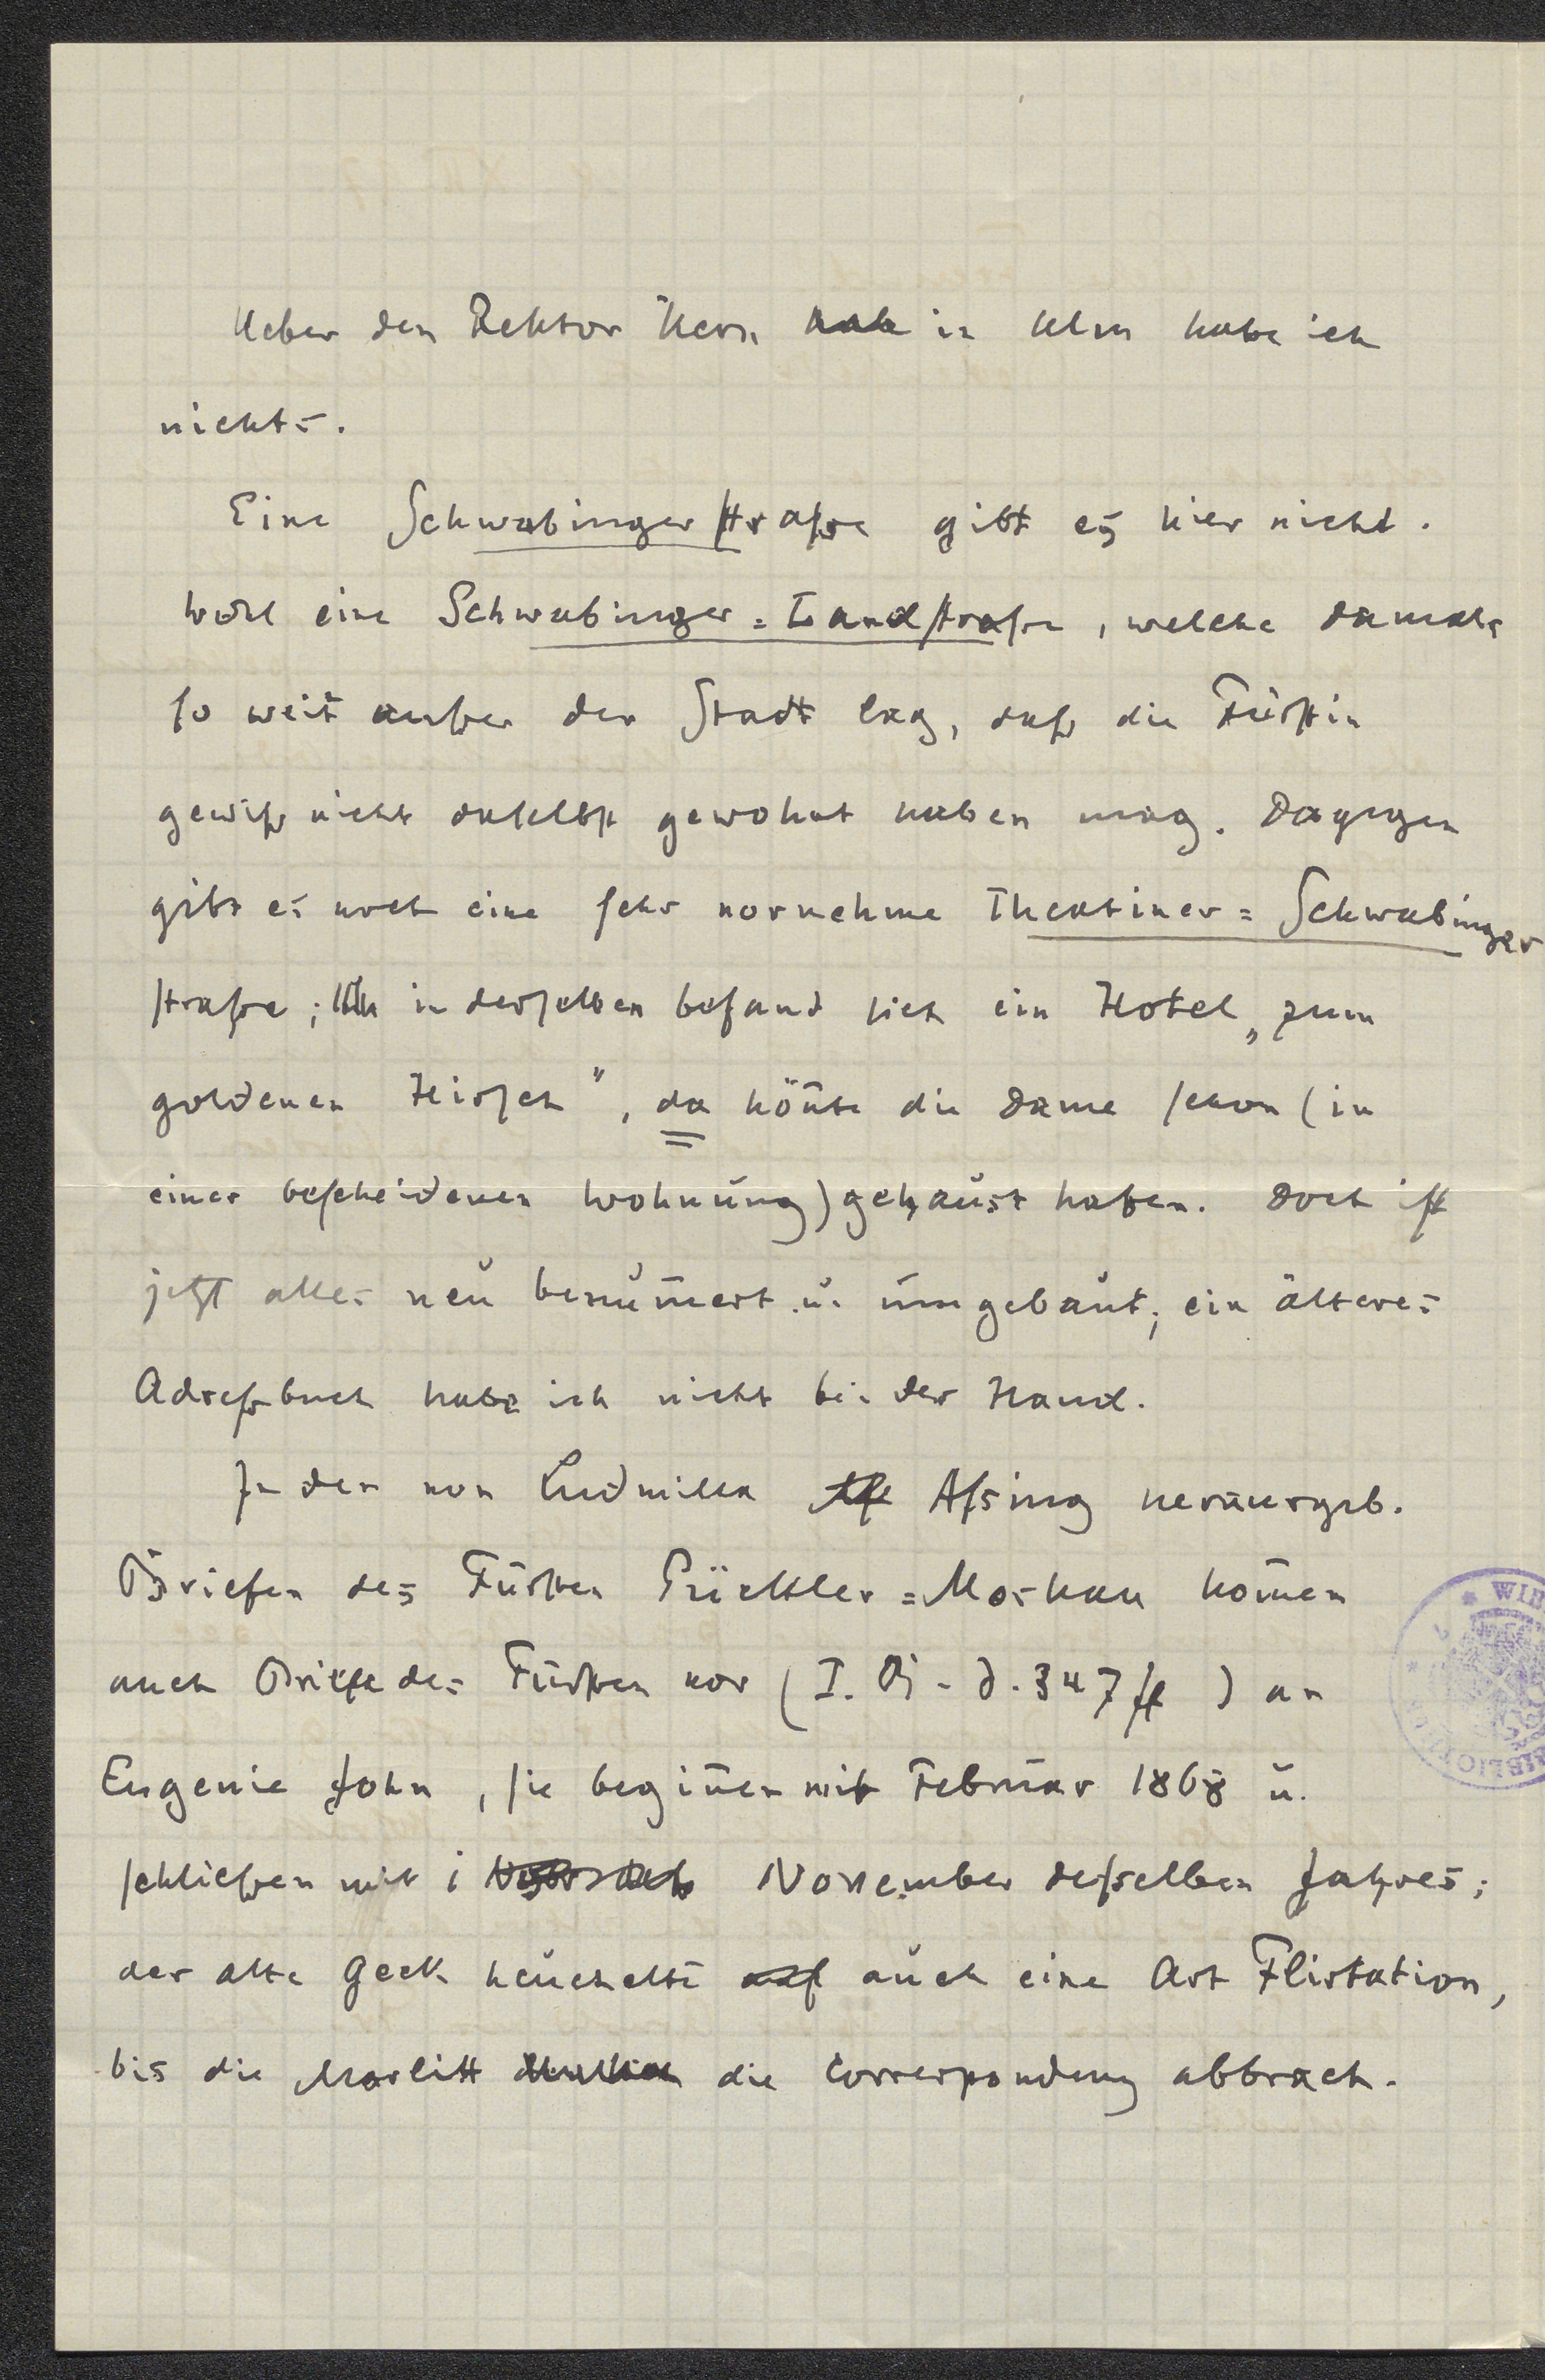 Ueber den Rektor Kern in Ulm habe ich
nichts.
Eine Schwabingerstraße gibt es hier nicht.
wohl eine Schwabinger=Landstraße, welche damals
so weit außer der Stadt lag, daß die Fürstin
gewiß nicht daselbst gewohnt haben mag. Dagegen
gibt es noch eine sehr vornehme Theatiner=Schwabinger
straße; in derselben befand sich ein Hotel „zum
goldenen Hirsch", da kön̄te die Dame schon (in
einer bescheidenen Wohnung) gehaust haben. Doch ist
jetzt alles neu benum̄ert u. umgebaut; ein älteres
Adreßbuch habe ich nicht bei der Hand.
In den von Ludmilla Assing herausgeb.
Briefen des Fürsten Pückler=Muskau kom̄en
auch Briefe des Fürsten vor (I. Bd. S. 347 ff) an
Eugenie John, sie begin̄en mit Februar 1868 u.
schließen mit November desselben Jahres;
der alte Geck heuchelte auch eine Art Flirtation,
bis die Marlitt die Correspondenz abbrach.